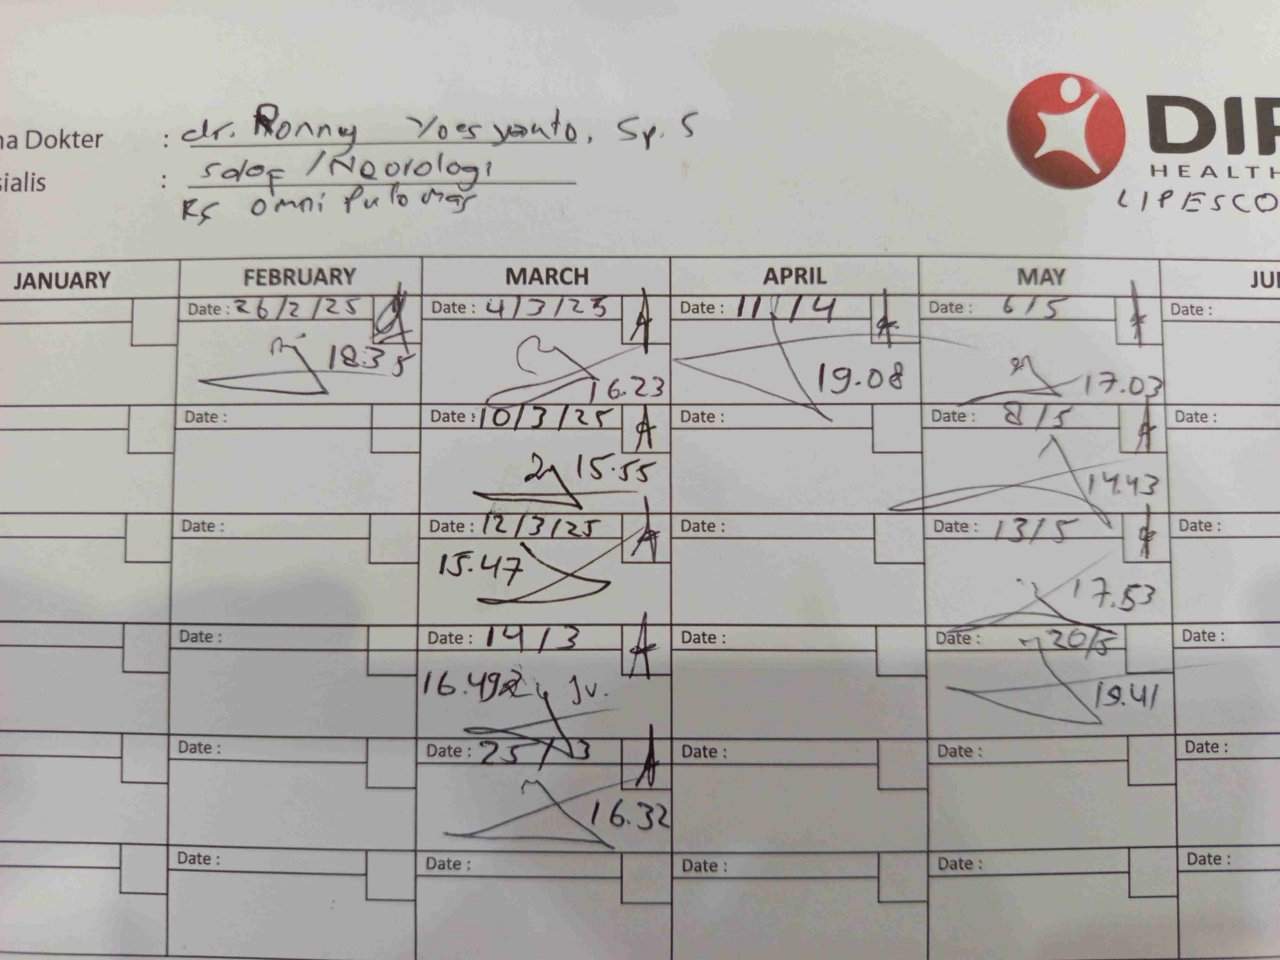 na Dokter : dr. Ronny Yoesyanto, Sp. S
sialis : Saraf / Neorologi
RS Omni Pulo Mas
DIP
HEALTH
LIPESCO
JANUARY FEBRUARY MARCH APRIL MAY JU
Date : 26/2/25 Date : 4/3/25 Date : 11/4 Date : 6/5 Date :
18.35 16.23 19.08 17.03
Date : Date : 10/3/25 Date : Date : 8/5 Date :
15.55 14.43
Date : Date : 12/3/25 Date : Date : 13/5 Date :
15.47 17.53
Date : Date : 14/3 Date : Date : 20/5 Date :
16.49 19.41
Date : Date : 25/3 Date : Date : Date :
16.32
Date : Date : Date : Date : Date :